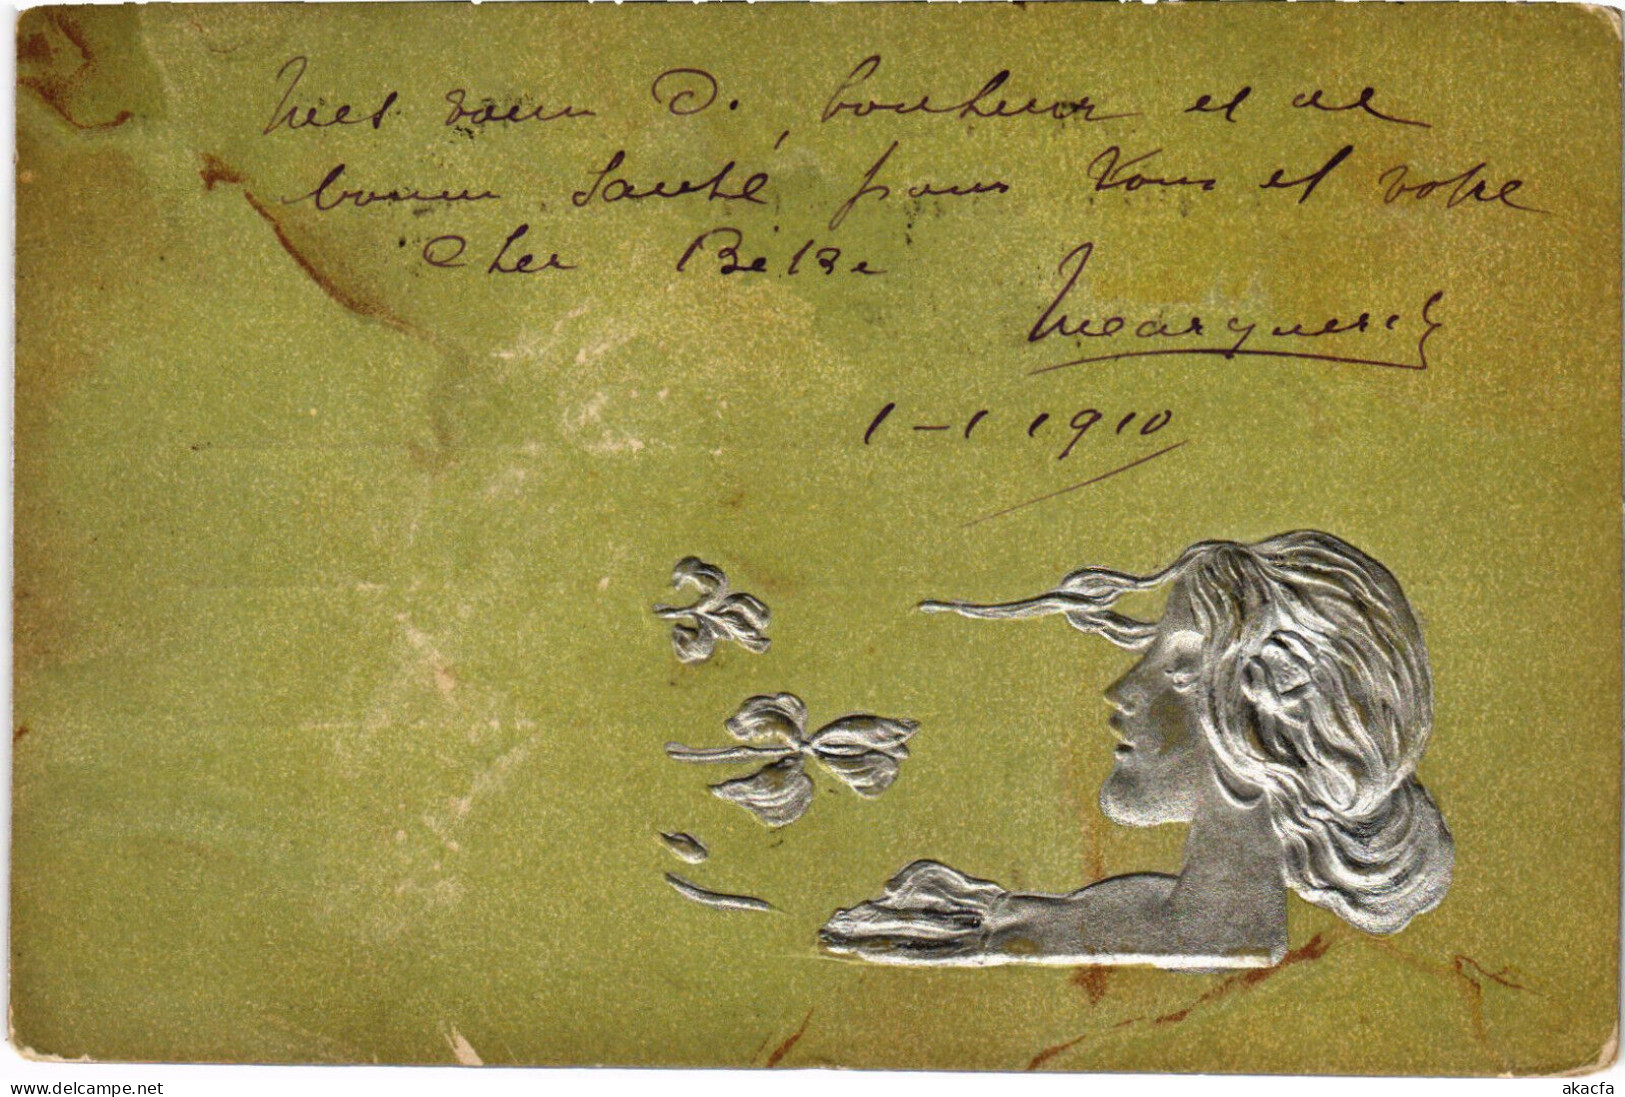 Mes vœux D. bonheur et de
bonne Santé pour Vous et votre
cher BéBé
Marguerite
1-1 1910
delcampe.net
akacfa